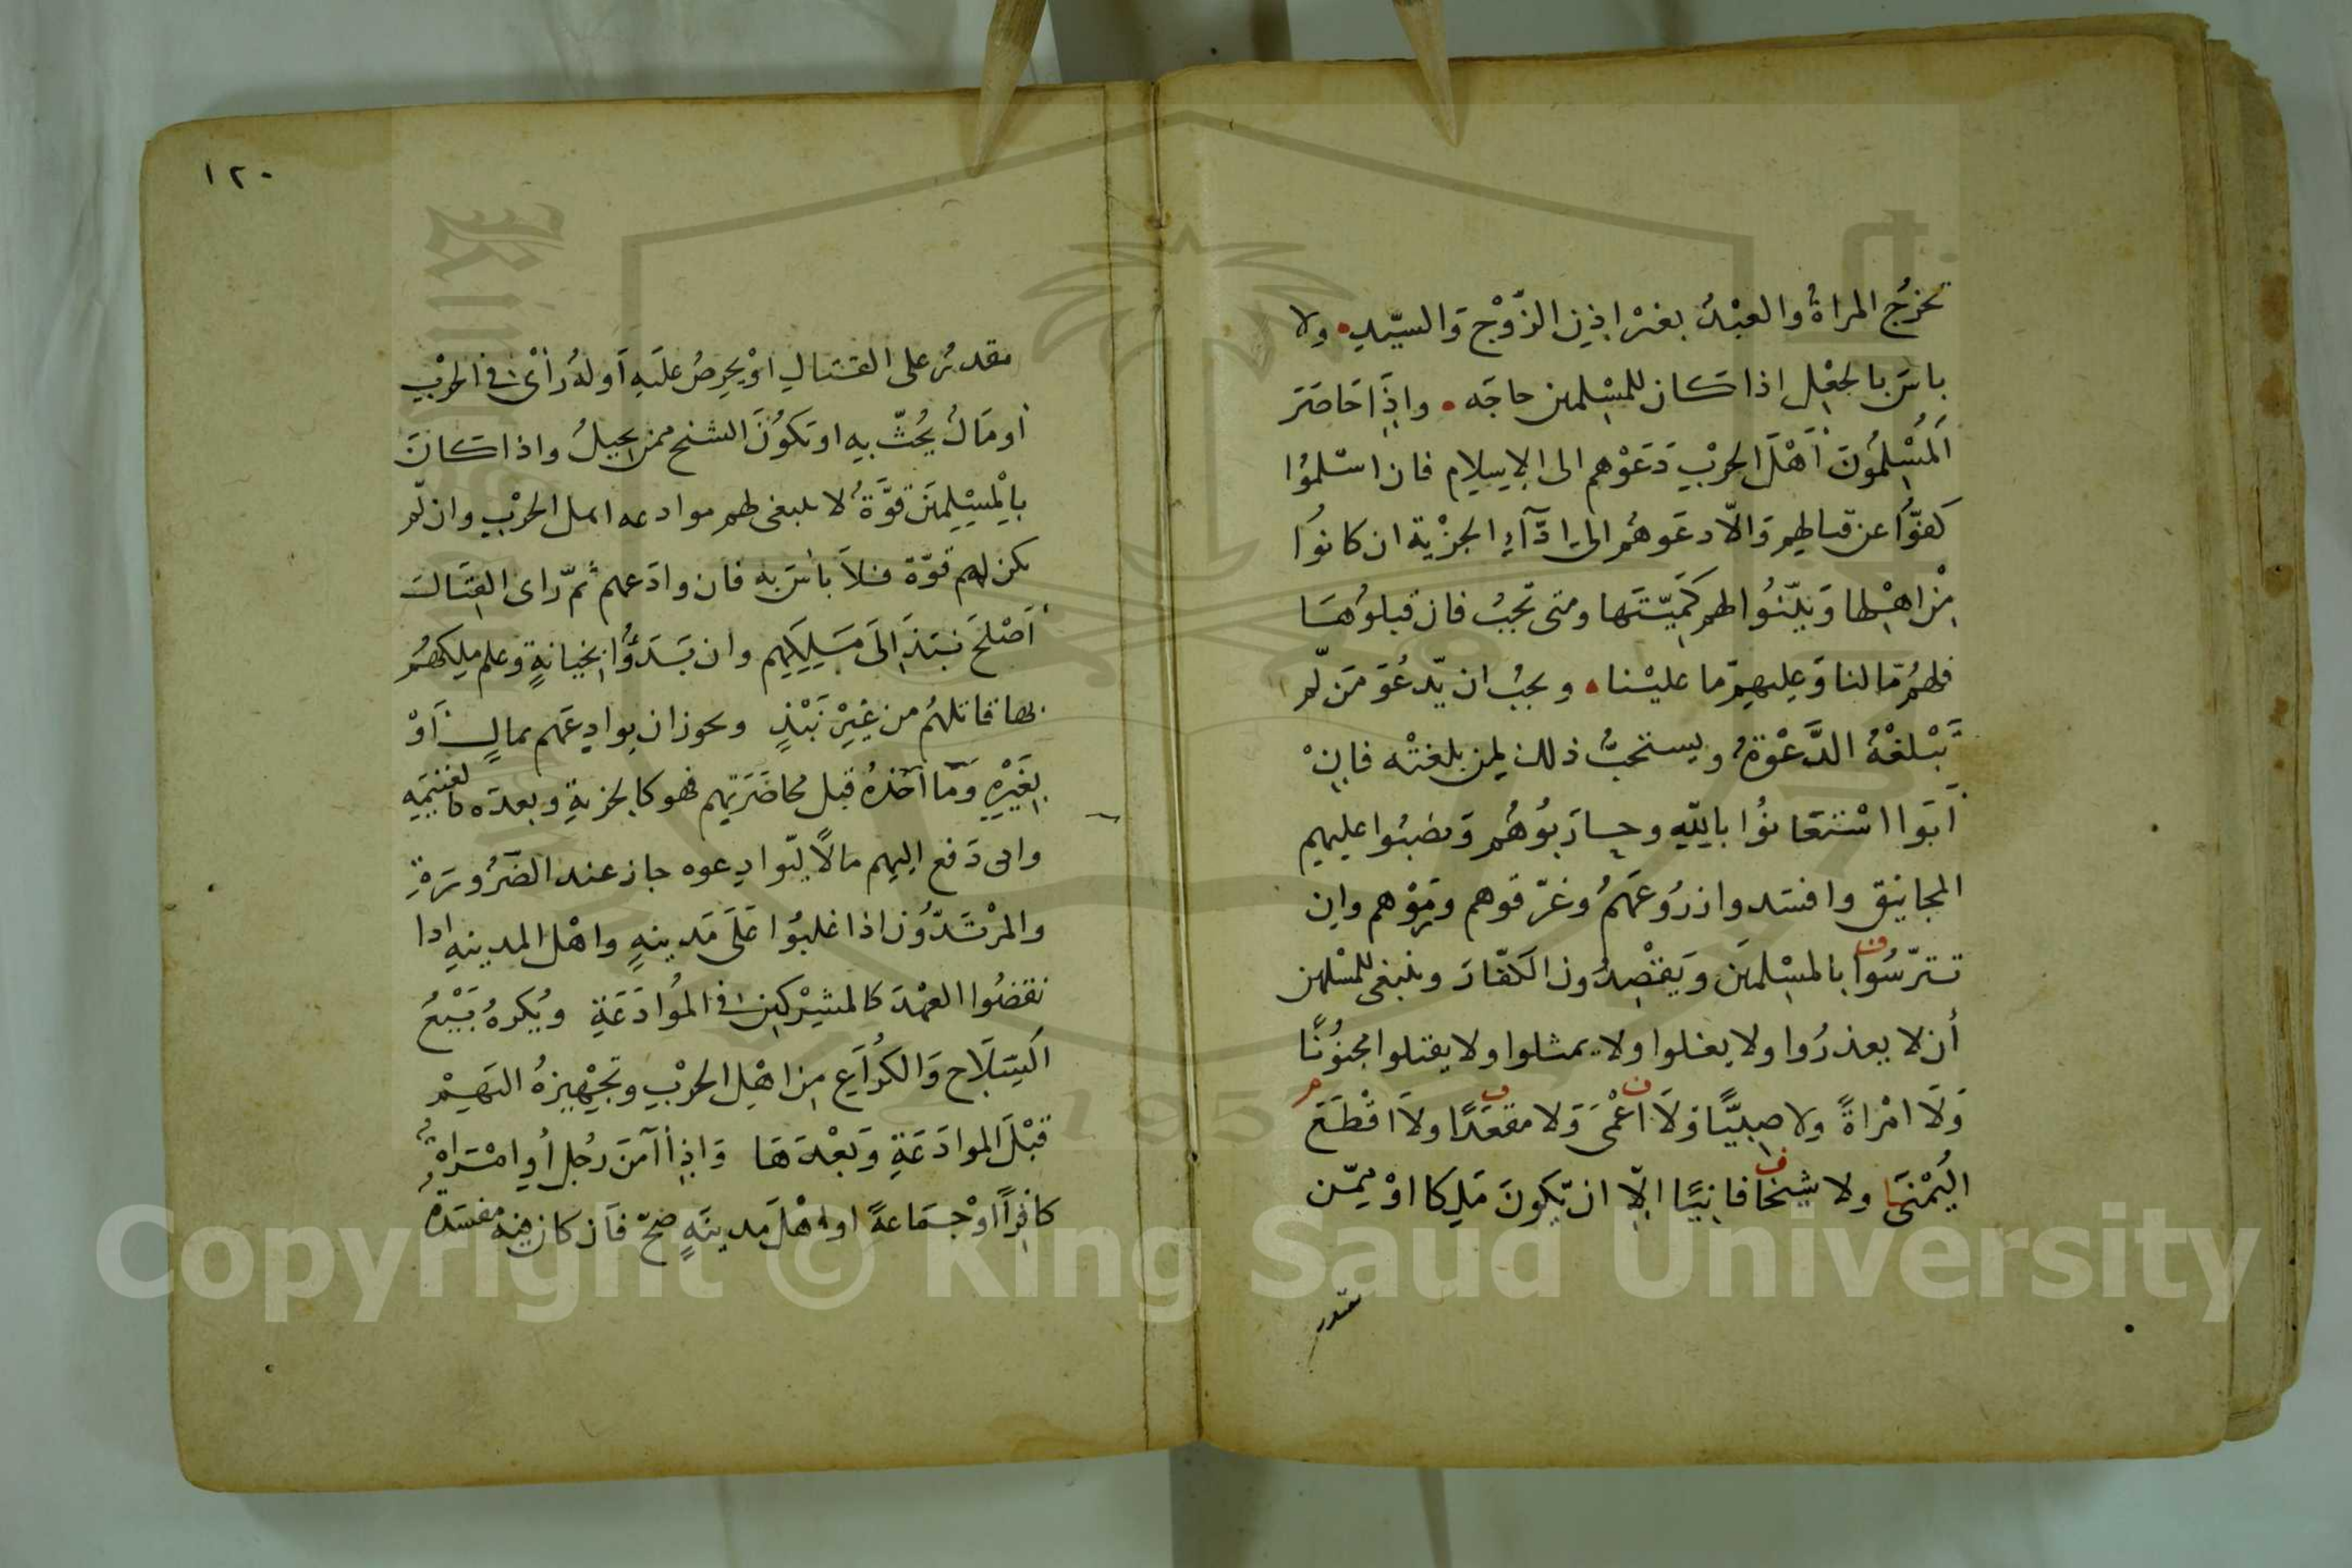 تخرُج المراةُ والعبْدُ بغيْر اذِن الزّوْج وَالسيّدِ ولا
باسَ بالجعْلِ اذا كان للمسْلمين حاجَه واذَا حَاصَرَ
اَلمسْلِمُونَ أَهْلَ الحرْبِ دَعَوْهم الى الاِسلامِ فان اسْلمُوا
كفوُّا عن قتالهِم وَالاّ دعَوهُم الى ادَّآءِ الجزْية ان كانوُا
مِنْ اهْلِها وَبيّنُوا لهم كَمِيّتَها ومتى تجبُ فان قبلوُهَا
فلهُم مَّا لنا وَعليهِم مّا عليْنا ويجبُ ان يّدعُوَ مَن لّم
تَبْلغْهُ الدَّعْوَةُ ويستحبُّ ذلك لِمن بلغتْه فاِنْ
أَبَوا اسْتعَانوُا باِللّهِ وحاربُوُهُم وَنصَبُوا عليهِم
المجانيق وافسَدوا زرُوعَهمُ وغرّقوهم ورَموْهم واِن
تترّسُوا بالمسْلمينَ وَيقْصِدُون الكفّارَ وينبغى للمسْلمين
أن لا يغدرُوا ولا يغلوا ولا يمثلوا ولا يقتلوا مجنُونًا
وَلَا امْراةً ولا صبِيًّا وَلَا أعْمَى وَلا مقعَدًا ولاَ اقْطَعَ
اليُمْنَى ولا شيْخًا فانِيًا اِلّا ان يّكونَ مَلِكا اوْ مِمّن
يقدر
١٢٠
يقدرُ على القتالِ اوْ يحرِصُ علَيهِ أَو لهُ رَأىٌ فى الحرْبِ
أو مَالٌ يُحُثّ بهِ او يَكوُنَ الشيخ ممن يحيلُ واذا كانَ
باِلْمسْلِمِينَ قوَّةٌ لا ينبغى لهم موادعه اهل الحرْبِ وان لّم
يكن لهم قوّة فلاَ باسَ به فان وادَعهم ثمّ راى القِتَالَ
أَصْلحَ نبَذَ اِلَى مَلِكِهِم وان بَدَؤُا بخِيانةٍ وعلم ملكهُم
بها قاتلهُم من غيِرْ نَبْذٍ ويجوز ان يوادِعَهم بمالٍ أَوْ
بِغَيْرِهِ وَمَا أخذهُ قبل محُاصَرَتِهم فهو كالجزيةِ وبعدَه كالغنيمَه
وان دَفع اليهم مالاً لّيوادِعوه جاز عند الضّرُورَةِ
والمرْتَدّوُن اذا غلبُوا عَلَى مَدينهٍ واهْل المدينهِ اذا
نقضُوا العهْدَ كالمشْرِكينَ فى المُوَادَعَةِ ويُكرهُ بَيْعُ
السِّلَاح وَالكُرَاعِ مِن اهْلِ الحرْبِ وتجْهِيزهُ اليَهِمْ
قبْلَ الموادَعَةِ وَبعْدَهَا وَاذِا آمَنَ رَجُلٌ أوِ امْرَاةٌ
كافِراً اوْ جَمَاعةً او اهْلَ مَدِينَهٍ صَحّ فَان كان فِيه مفسَدَةٌ
Copyright © King Saud University
1957